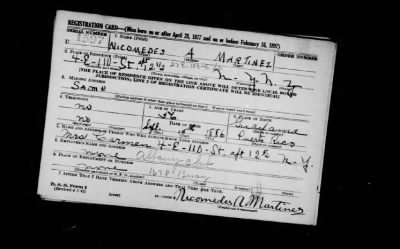 REGISTRATION CARD—(Men born on or after April 28, 1877 and on or before February 16, 1897)
SERIAL NUMBER 1. NAME (Print) ORDER NUMBER
U 1507 NICOMEDES A MARTINEZ
2. PLACE OF RESIDENCE (Print)
4-E-110-St apt 12½ N.Y. N.Y.
[THE PLACE OF RESIDENCE GIVEN ON THE LINE ABOVE WILL DETERMINE LOCAL BOARD
JURISDICTION; LINE 2 OF REGISTRATION CERTIFICATE WILL BE IDENTICAL]
3. MAILING ADDRESS
Same
4. TELEPHONE 5. AGE IN YEARS 6. PLACE OF BIRTH
no 56
DATE OF BIRTH
no Sept 15th 1886 Puerto Rico
7. NAME AND ADDRESS OF PERSON WHO WILL ALWAYS KNOW YOUR ADDRESS
Mrs Carmen 4-E-110-St apt 12½ N.Y.
8. EMPLOYER'S NAME AND ADDRESS
none
9. PLACE OF EMPLOYMENT OR BUSINESS
none
I AFFIRM THAT I HAVE VERIFIED ABOVE ANSWERS AND THAT THEY ARE TRUE.
D. S. S. Form 1
(Revised 4-1-42)
Nicomedes A Martinez